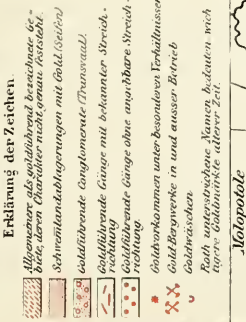 Erklärung der Zeichen.
Allgemeine als goldführend bezeichnete Ge-
biete, deren Charakter nicht genau feststeht.
Schwemmlandablagerungen mit Gold (Seifen)
Goldführende Conglomerate (Transvaal).
Goldführende Gänge mit bekannter Streich-
richtung
Goldführende Gänge ohne angebbare Streich-
richtung
Goldvorkommen unter besonderen Verhältnissen
Gold Bergwerke in und ausser Betrieb
Goldwäschen
Roth unterstrichene Namen bedeuten wich
tigere Goldmärkte älterer Zeit.
Molopolole